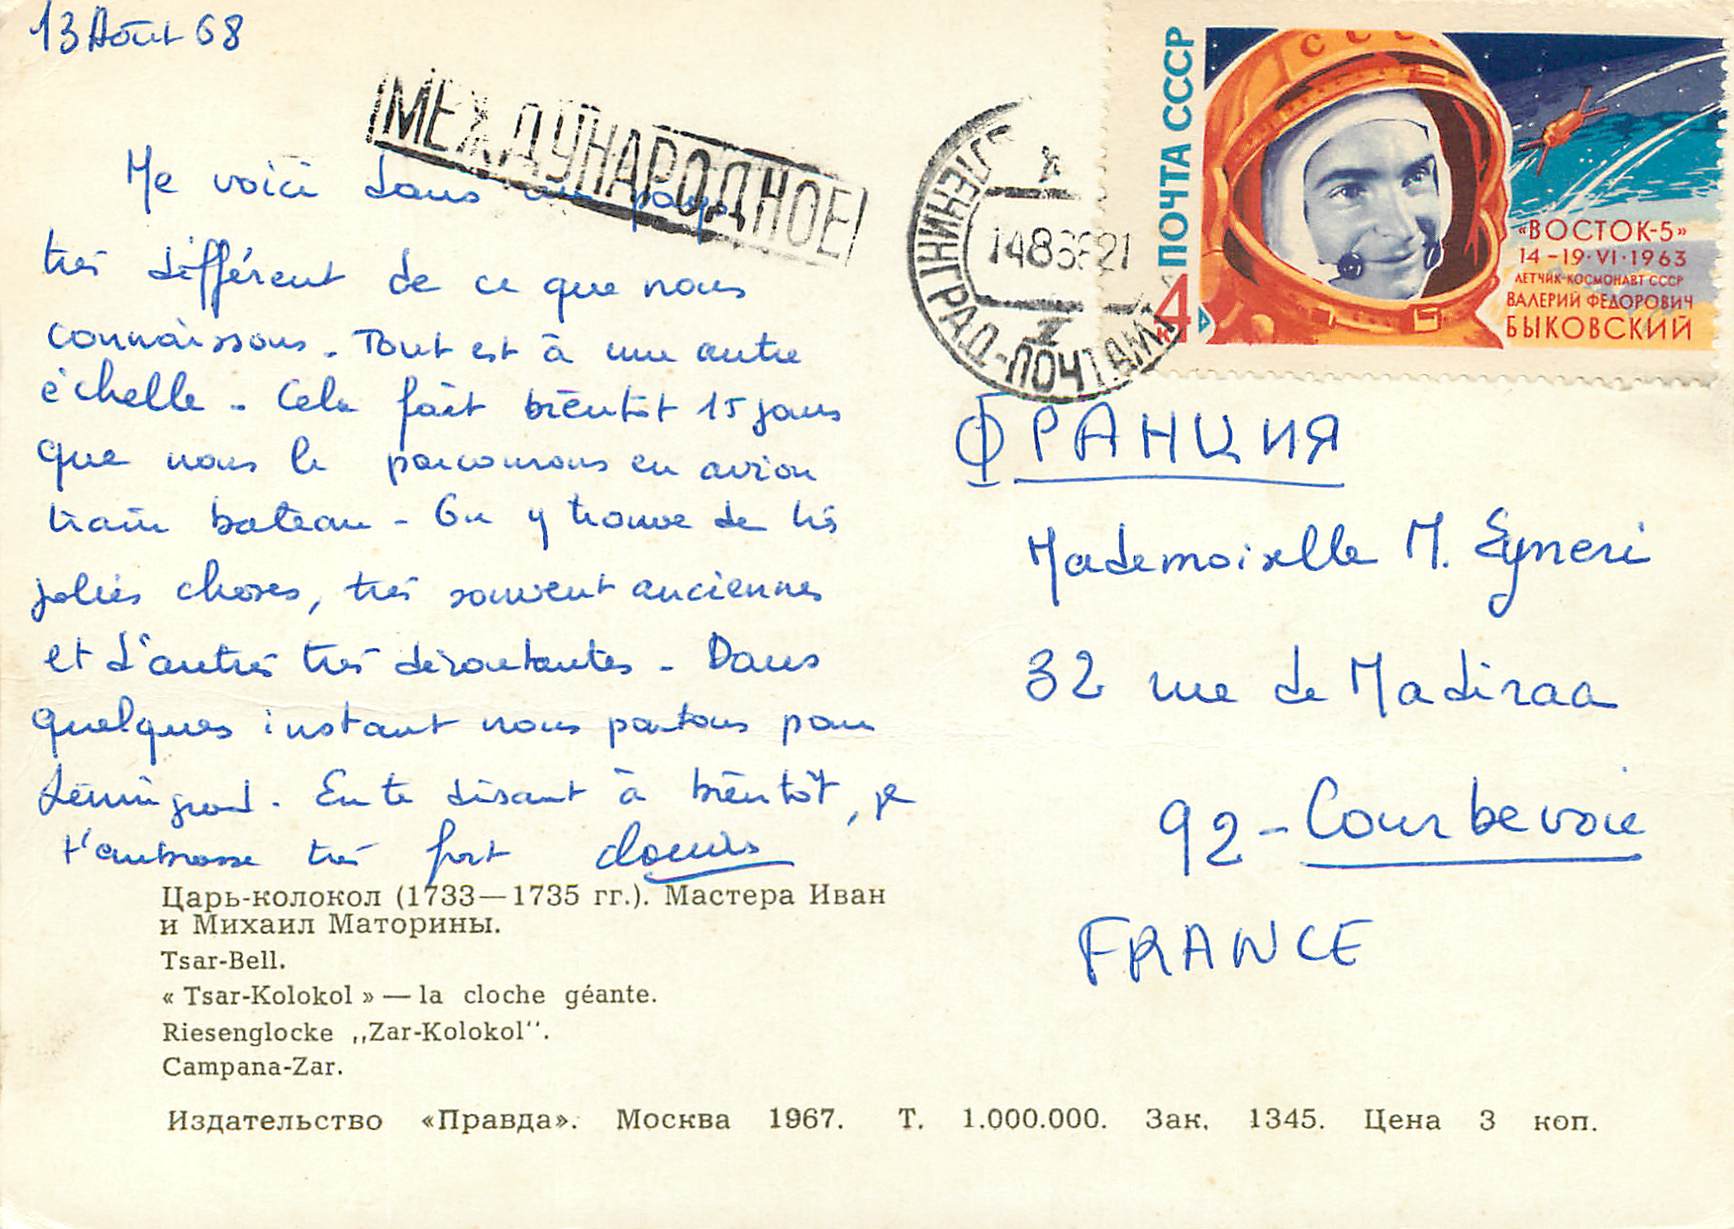 13 Août 68
МЕЖДУНАРОДНОЕ
Me voici dans un pays
très différent de ce que nous
connaissons. Tout est à une autre
échelle. Cela fait bientôt 15 jours
que nous le parcourons en avion
train bateau - On y trouve de très
jolies choses, très souvent anciennes
et d'autres très déroutantes. Dans
quelques instant nous partons pour
Léningrad. En te disant à bientôt, je
t'embrasse très fort
Царь-колокол (1733—1735 гг.). Мастера Иван
и Михаил Маторины.
Tsar-Bell.
« Tsar-Kolokol » — la cloche géante.
Riesenglocke ,,Zar-Kolokol''.
Campana-Zar.
Издательство «Правда». Москва 1967. Т. 1.000.000. Зак. 1345. Цена 3 коп.
ЛЕНИНГРАД-ПОЧТАМТ
ПОЧТА СССР
4
к
СССР
«ВОСТОК-5»
14-19·VI·1963
ЛЕТЧИК-КОСМОНАВТ СССР
ВАЛЕРИЙ ФЕДОРОВИЧ
БЫКОВСКИЙ
ФРАНЦИЯ
Mademoiselle M. Eyneri
32 rue de Madiraa
92 - Courbevoie
FRANCE